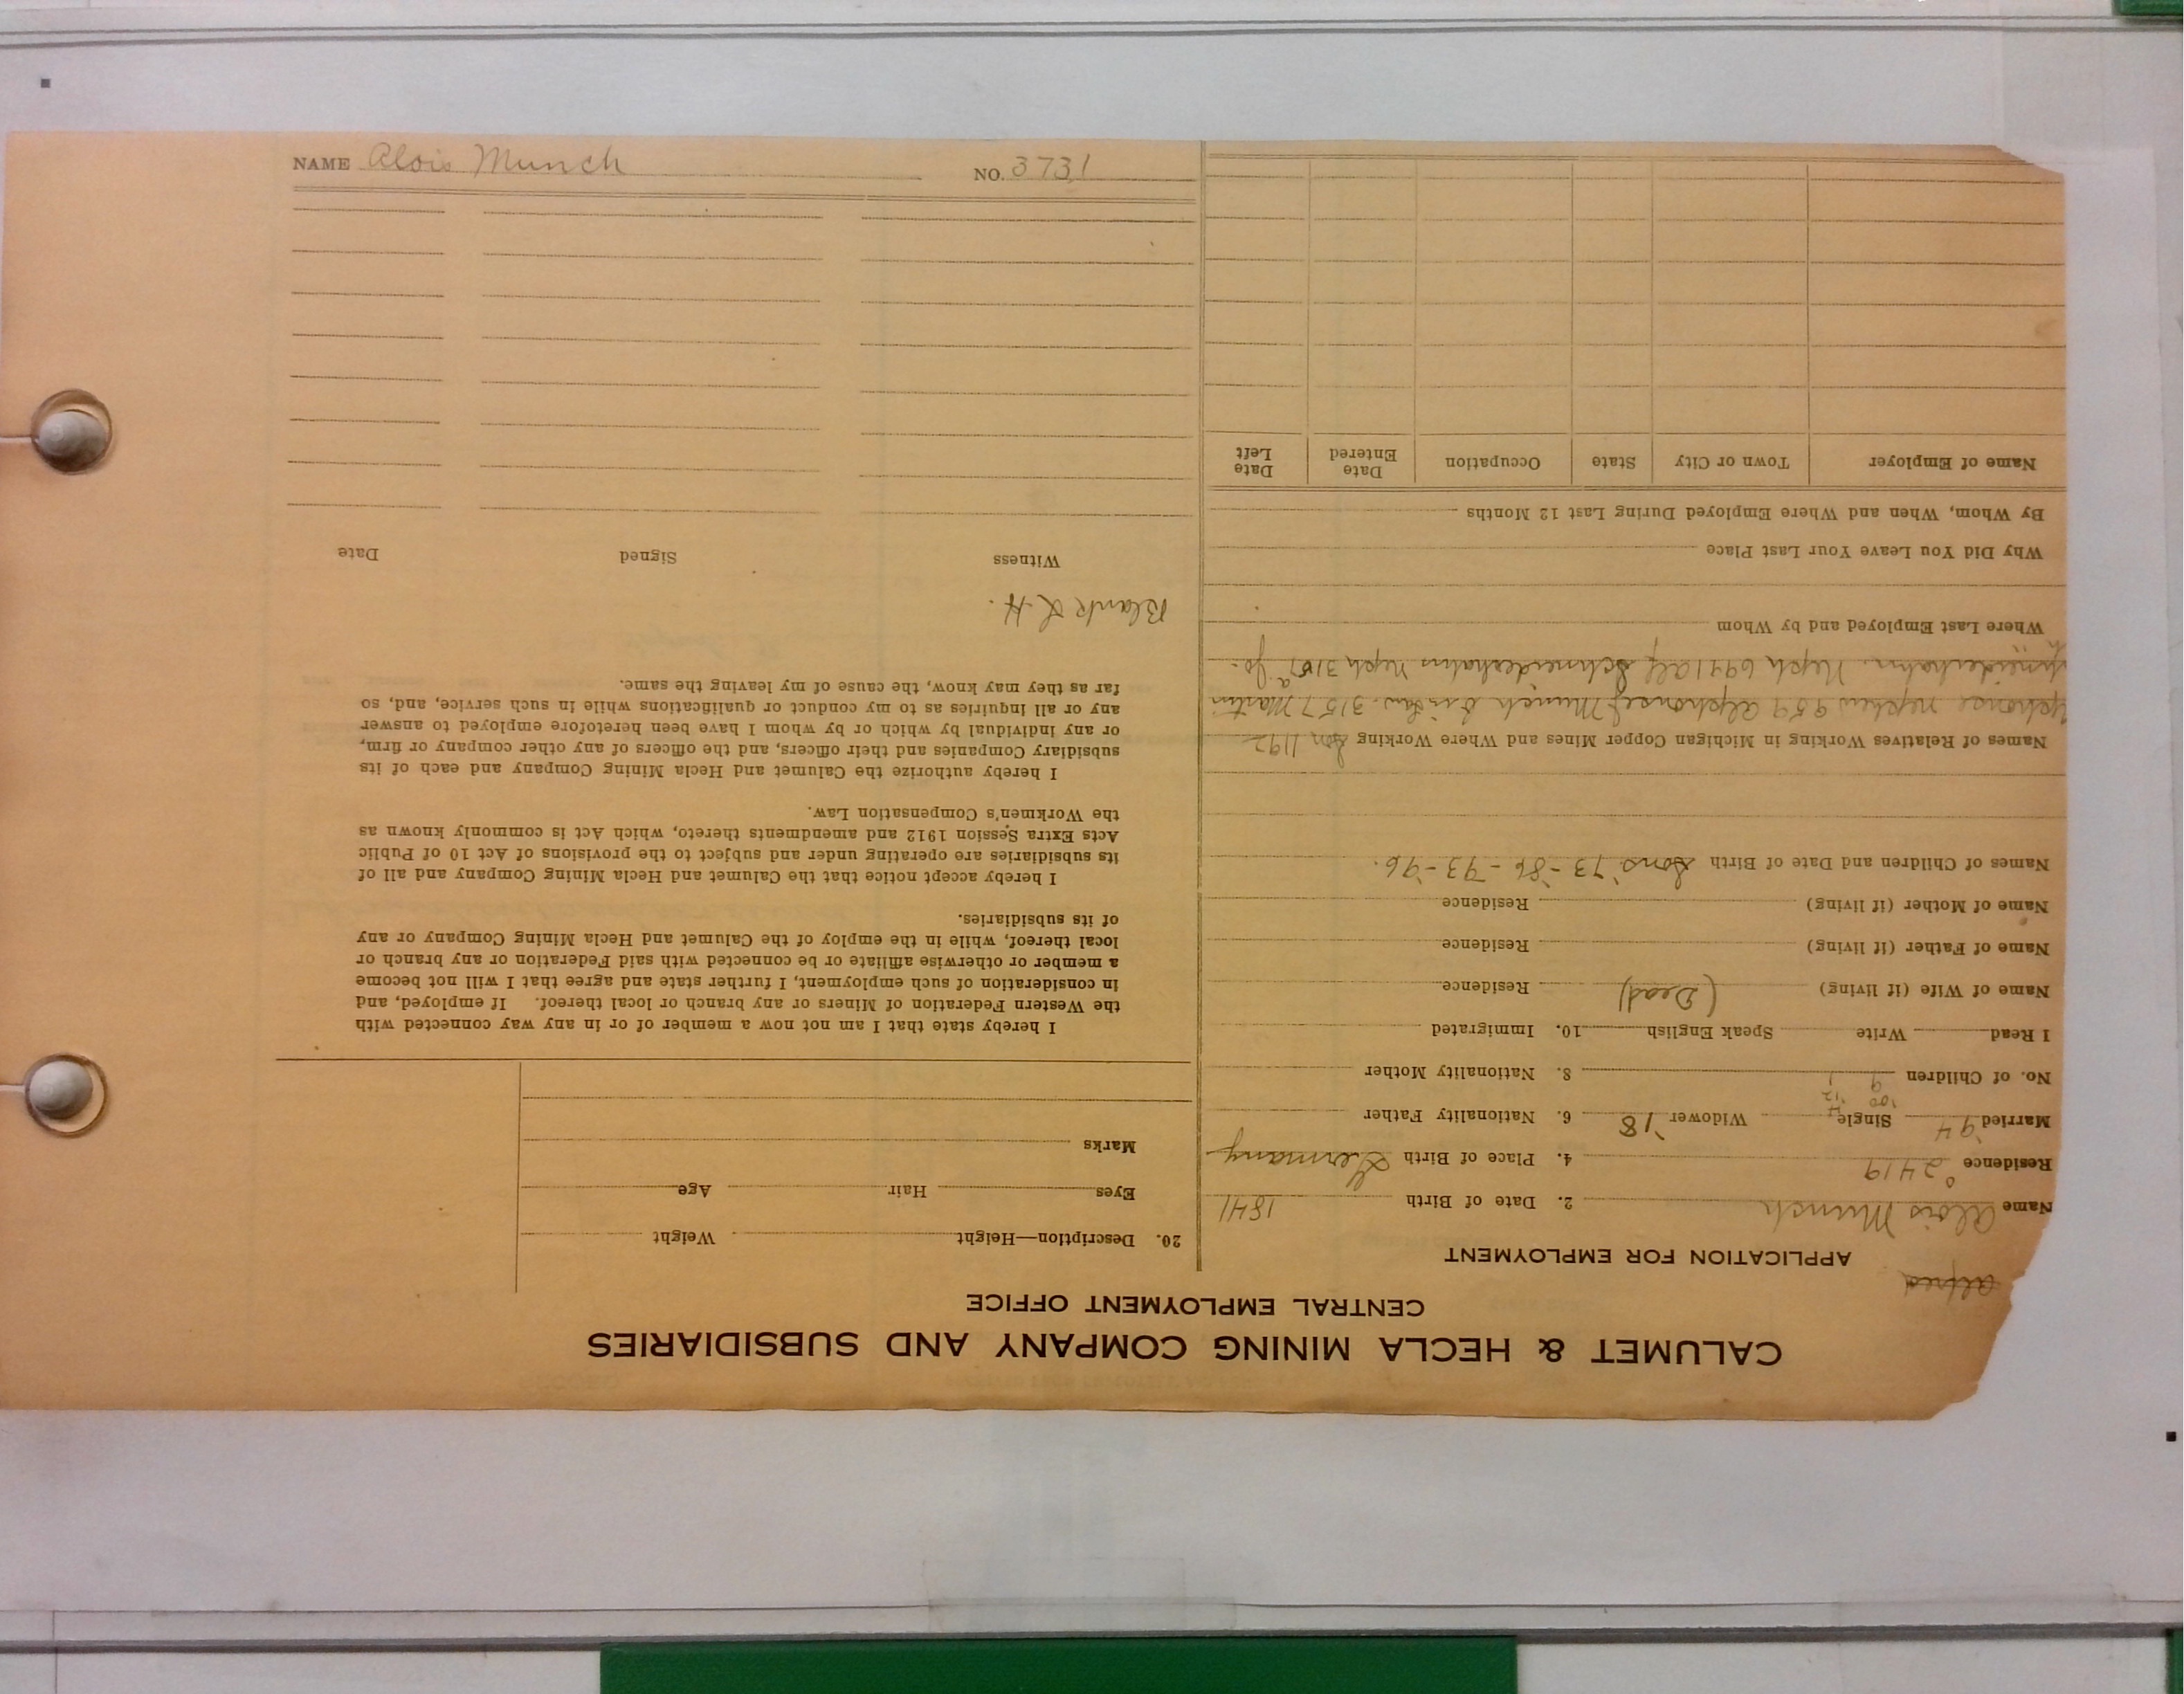 NAME Alois Munch NO. 3731
CALUMET & HECLA MINING COMPANY AND SUBSIDIARIES
CENTRAL EMPLOYMENT OFFICE
Alfred
APPLICATION FOR EMPLOYMENT
Name Alois Munch 2. Date of Birth 1841
Residence 2419 4. Place of Birth Germany
Married '94 Single Widower '18 6. Nationality Father
'00 '12
No. of Children 8. Nationality Mother
I Read Write Speak English 10. Immigrated
Name of Wife (if living) (Dead) Residence
Name of Father (if living) Residence
Name of Mother (if living) Residence
Names of Children and Date of Birth Sons '73 - '86 - '93 - '96.
Names of Relatives Working in Michigan Copper Mines and Where Working Son 1192
nephew 959 Alphonse Munch 3157 Martin
Neph 6941 Alf Schneiderhahn Neph
Where Last Employed and by Whom
Why Did You Leave Your Last Place
By Whom, When and Where Employed During Last 12 Months
Name of Employer Town or City State Occupation Date Entered Date Left
20. Description—Height Weight
Eyes Hair Age
Marks
I hereby state that I am not now a member of or in any way connected with
the Western Federation of Miners or any branch or local thereof. If employed, and
in consideration of such employment, I further state and agree that I will not become
a member or otherwise affiliate or be connected with said Federation or any branch or
local thereof, while in the employ of the Calumet and Hecla Mining Company or any
of its subsidiaries.
I hereby accept notice that the Calumet and Hecla Mining Company and all of
its subsidiaries are operating under and subject to the provisions of Act 10 of Public
Acts Extra Session 1912 and amendments thereto, which Act is commonly known as
the Workmen's Compensation Law.
I hereby authorize the Calumet and Hecla Mining Company and each of its
subsidiary Companies and their officers, and the officers of any other company or firm,
or any individual by which or by whom I have been heretofore employed to answer
any or all inquiries as to my conduct or qualifications while in such service, and, so
far as they may know, the cause of my leaving the same.
Blank L. H.
Witness Signed Date